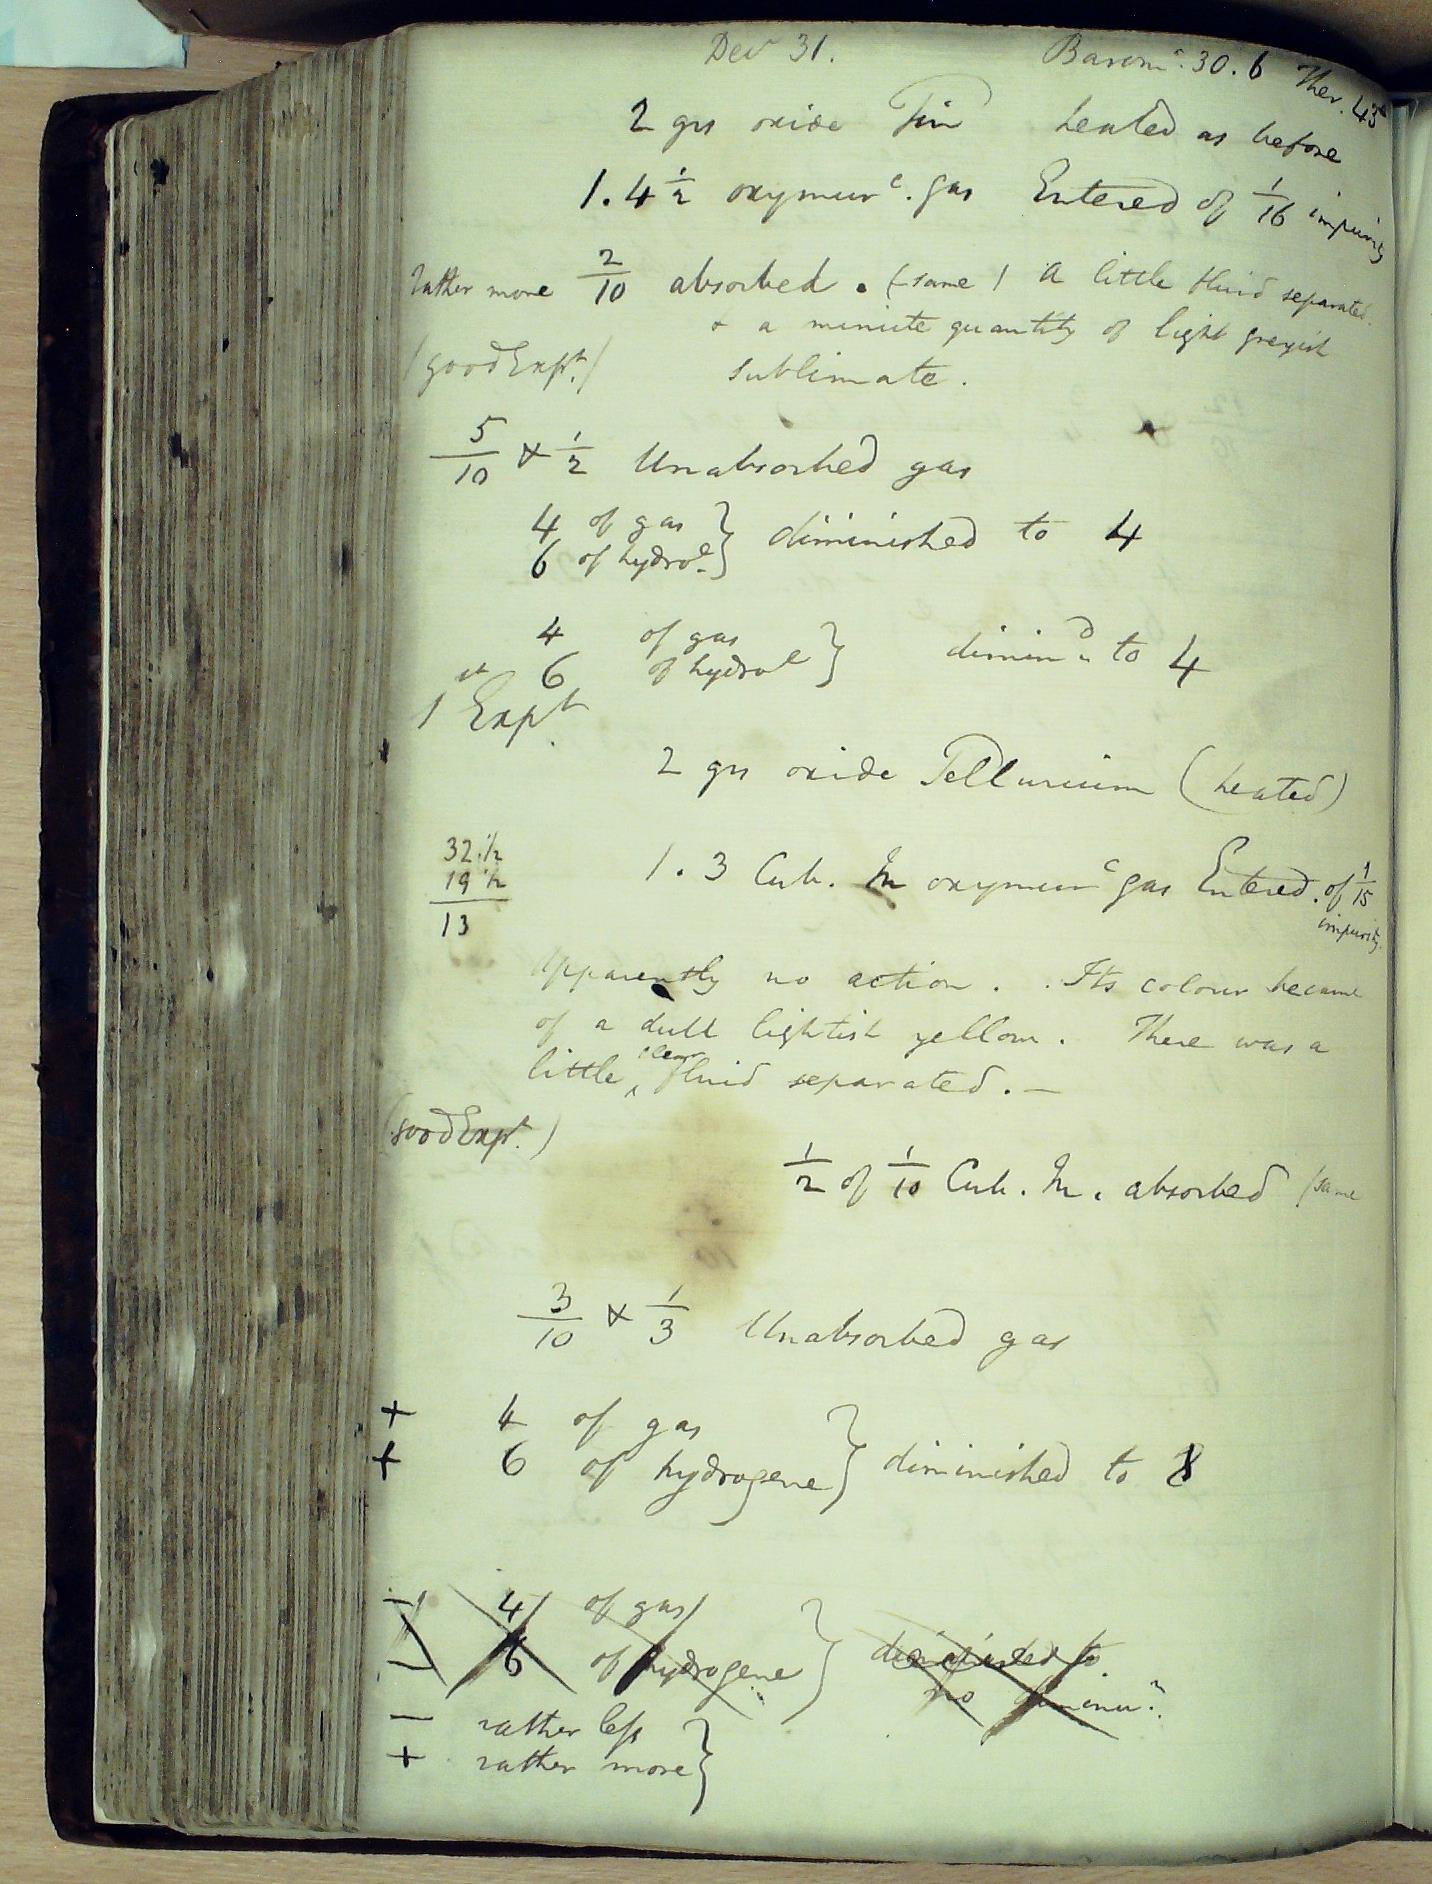 Decr 31. Baromr. 30.6 Ther. 43°
2 grs oxide Tin heated as before
1.4 1/2 oxymurc. gas Entered of 1/16 impurity
rather more 2/10 absorbed. (same) A little fluid separated.
& a minute quantity of light greyish
(good Expt.) sublimate.
5/10 & 1/2 Unabsorbed gas
4 of gas
6 of hydroe. } diminished to 4
4 of gas
6 of hydroe } dimind. to 4
1st Expt.
2 grs oxide Tellurium (heated)
32.1/2
19 1/2
13
1.3 Cub. In oxymurc gas Entered. of 1/15
impurity.
Apparently no action. Its colour became
of a dull lightish yellow. There was a
little clear fluid separated. —
(good Expt.)
1/2 of 1/10 Cub. In. absorbed (same
3/10 & 1/3 Unabsorbed gas
+ 4 of gas
+ 6 of hydrogene } diminished to 8
— 4 of gas
— 6 of hydrogene } diminished to
no diminn.
— rather less
+ rather more }